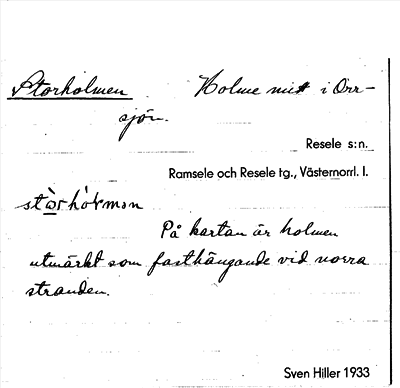 Storholmen Holme mitt i Orr-
sjön.
Resele s:n.
Ramsele och Resele tg., Västernorrl. l.
På kartan är holmen
utmärkt som fasthängande vid norra
stranden.
Sven Hiller 1933